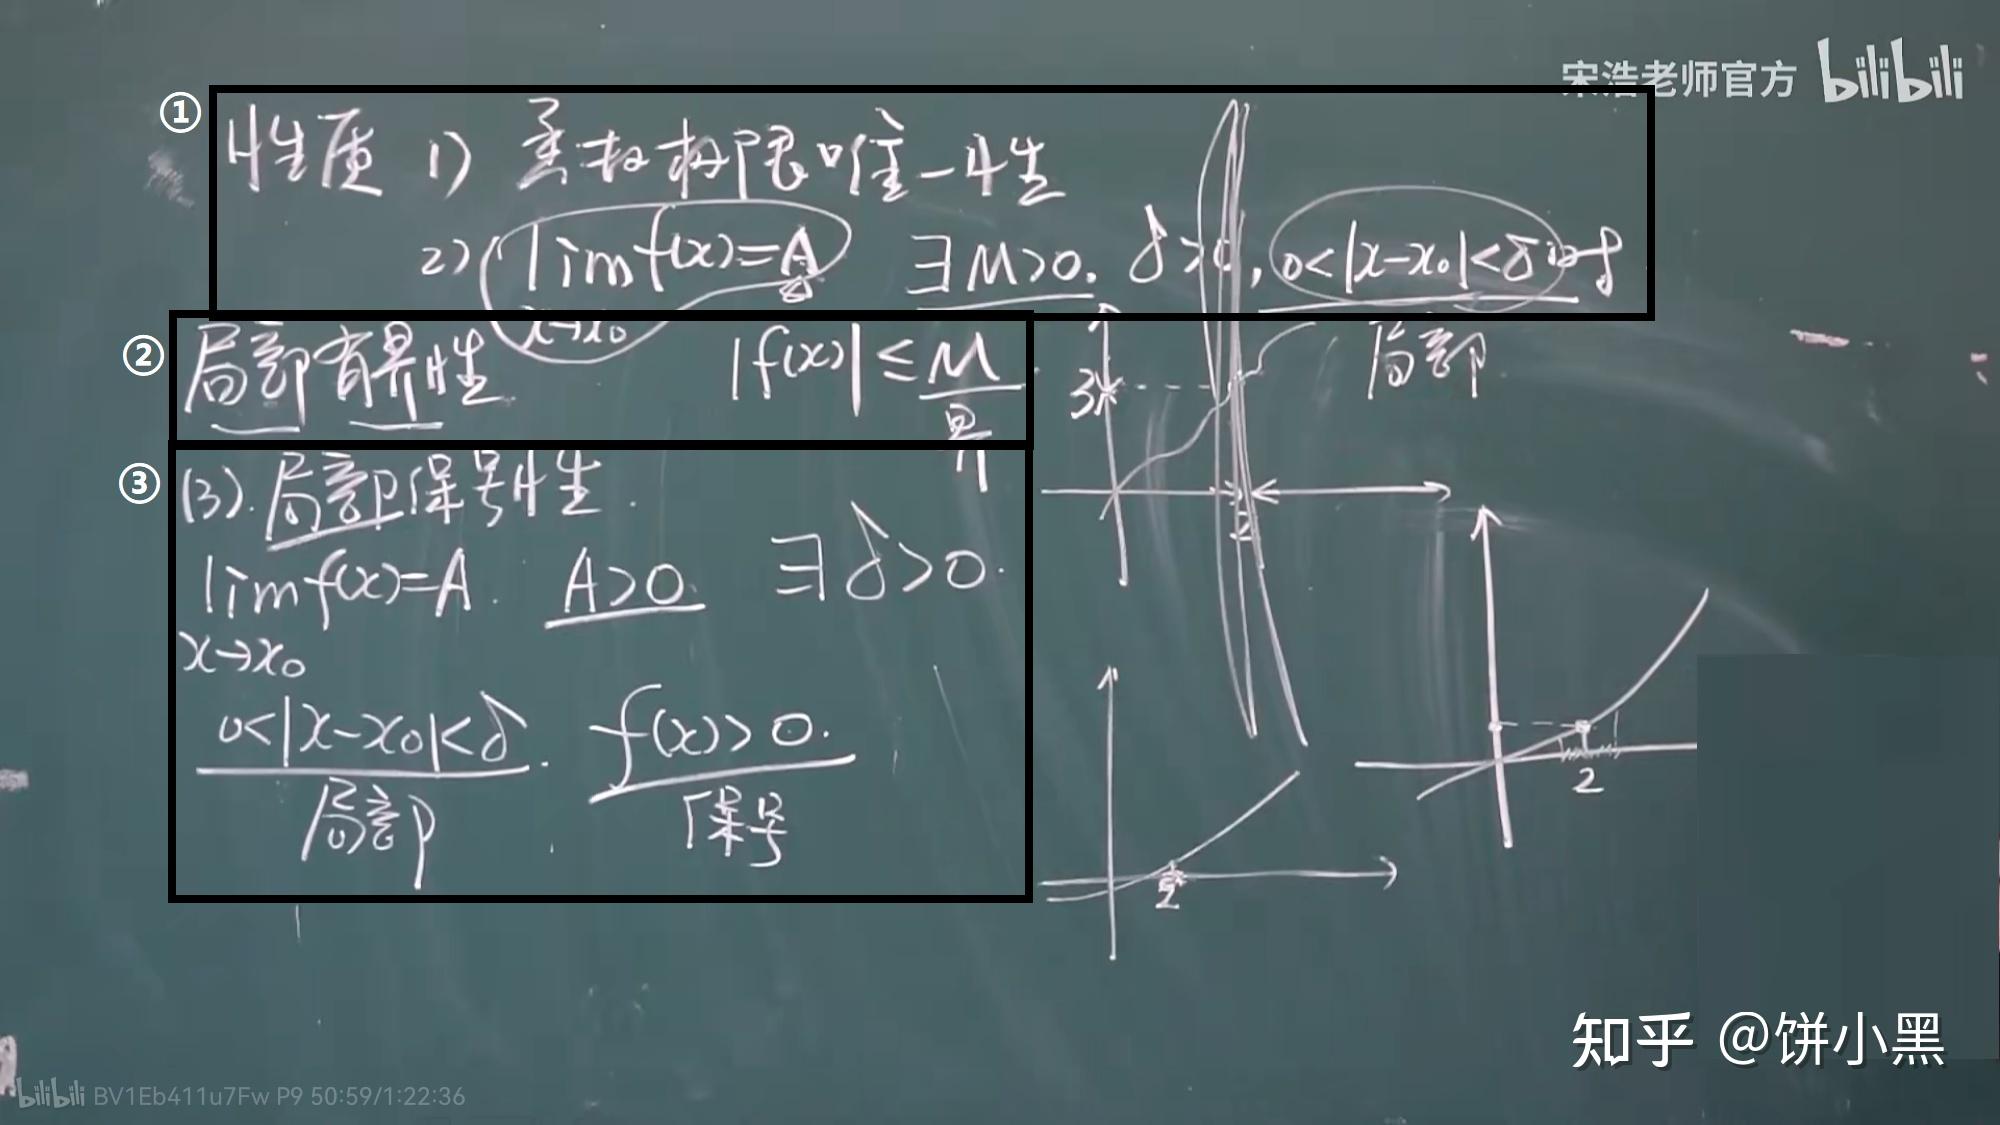 宋浩老师官方 bilibili
① 性质 1) 函数极限唯一性
2) lim f(x)=A ∃M>0. δ>0, 0<|x-x₀|<δ时
x→x₀
② 局部有界性 |f(x)|≤M
界
局部
3
2
③ (3). 局部保号性.
lim f(x)=A. A>0. ∃δ>0.
x→x₀
0<|x-x₀|<δ. f(x)>0.
局部 保号
2
2
知乎 @饼小黑
bilibili BV1Eb411u7Fw P9 50:59/1:22:36